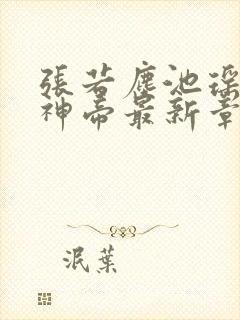 張若塵池瑤
神帝最新章
泯葉